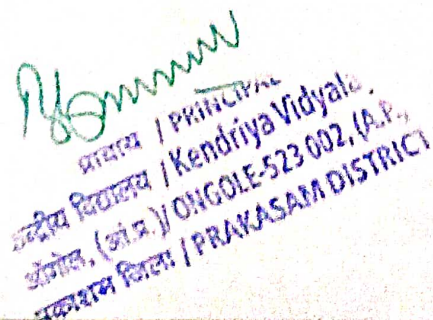 प्राचार्य / PRINCIPAL
केन्द्रीय विद्यालय / Kendriya Vidyala
ओंगोल, (आं.प्र.)/ ONGOLE-523 002, (A.P.,
प्रकाशम जिला / PRAKASAM DISTRICT